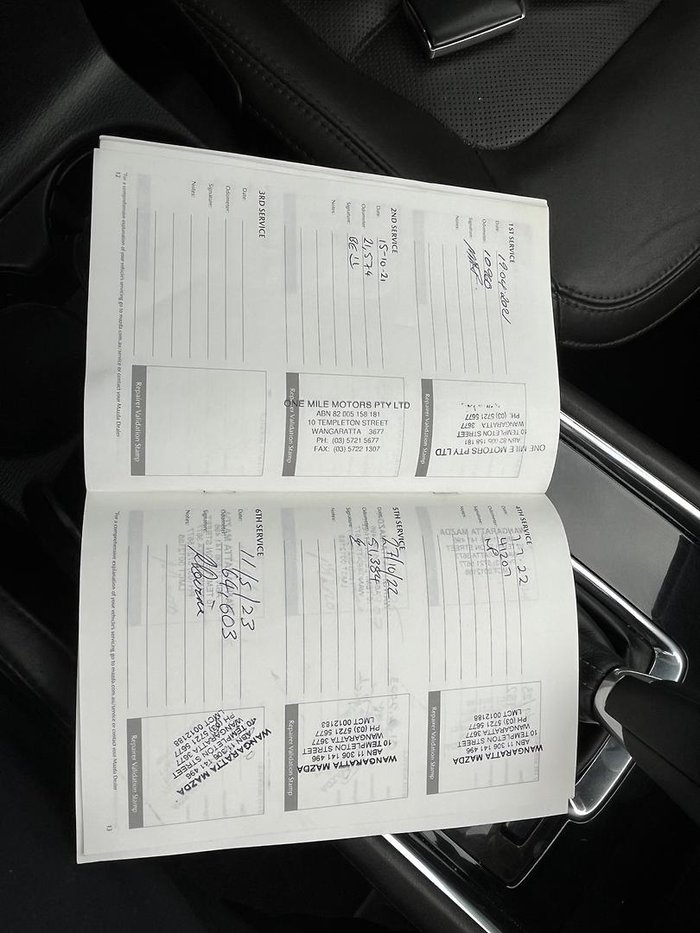 1ST SERVICE
Date: 19.04.2021
Odometer:
Signature:
Notes:
ONE MILE MOTORS PTY LTD
ABN 82 005 158 181
10 TEMPLETON STREET
WANGARATTA 3677
PH: (03) 5721 5677
Repairer Validation Stamp
2ND SERVICE
Date: 15-10-21
Odometer: 21,574
Signature:
Notes:
ONE MILE MOTORS PTY LTD
ABN 82 005 158 181
10 TEMPLETON STREET
WANGARATTA 3677
PH: (03) 5721 5677
FAX: (03) 5722 1307
Repairer Validation Stamp
3RD SERVICE
Date:
Odometer:
Signature:
Notes:
Repairer Validation Stamp
*For a comprehensive explanation of your vehicle's servicing go to mazda.com.au/service or contact your Mazda Dealer
12
4TH SERVICE
WANGARATTA MAZDA
ABN 11 306 141 496
10 TEMPLETON STREET
WANGARATTA 3677
PH (03) 5721 5677
LMCT 0012188
Repairer Validation Stamp
5TH SERVICE
Date: 27/10/22
Odometer: 51,384
Signature:
Notes:
WANGARATTA MAZDA
ABN 11 306 141 496
10 TEMPLETON STREET
WANGARATTA 3677
PH (03) 5721 5677
LMCT 0012183
Repairer Validation Stamp
6TH SERVICE
Date: 11/5/23
Odometer: 64603
Signature:
Notes:
WANGARATTA MAZDA
ABN 11 306 141 496
10 TEMPLETON STREET
WANGARATTA 3677
PH (03) 5721 5677
LMCT 0012188
Repairer Validation Stamp
*For a comprehensive explanation of your vehicle's servicing go to mazda.com.au/service or contact your Mazda Dealer
13